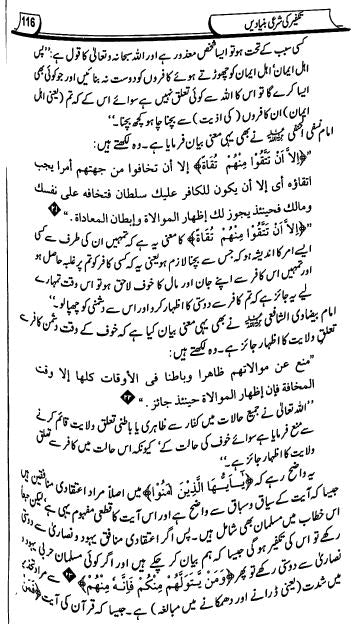 تکفیر کی شرعی بنیادیں
116
کسی سبب کے تحت ہو تو ایسا شخص معذور ہے اور اللہ سبحانہ وتعالیٰ کا قول ہے: ”پس
اہل ایمان‘ اہل ایمان کو چھوڑتے ہوئے کافروں کو دوست نہ بنائیں اور جو کوئی بھی
ایسا کرے گا تو اس کا اللہ سے کوئی تعلق نہیں ہے سوائے اس کے کہ تم (یعنی اہل
ایمان) ان کافروں (کی اذیت) سے بچنا چاہو کچھ بچنا۔“
امام نسفی الحنفی نے بھی یہی معنی بیان فرمایا ہے۔ وہ لکھتے ہیں:
”﴿إِلَّا أَنْ تَتَّقُوْا مِنْهُمْ تُقَاةً﴾ إلا أن تخافوا من جهتهم أمرا يجب
اتقاؤه أى إلا أن يكون للكافر عليك سلطان فتخافه على نفسك
ومالك فحينئذ يجوز لك إظهار الموالاة وإبطان المعاداة.“
”﴿إِلَّا أَنْ تَتَّقُوْا مِنْهُمْ تُقَاةً﴾ کا معنی یہ ہے کہ تمہیں ان کی طرف سے کسی
ایسے امر کا اندیشہ ہو کہ جس سے بچنا لازم ہو یعنی یہ کہ کسی کافر کو تم پر غلبہ حاصل ہو
اور تمہیں اس کافر سے اپنے جان اور مال کا خوف لاحق ہو تو اس وقت تمہارے
لیے یہ جائز ہے کہ تم کافر سے دوستی کا اظہار کرو اور اس سے دشمنی کو چھپا لو۔“
امام بیضاوی الشافعی نے بھی یہی معنی بیان کیا ہے کہ خوف کے وقت دشمن کافر سے
تعلق ولایت کا اظہار جائز ہے۔ وہ لکھتے ہیں:
”منع عن موالاتهم ظاهرا وباطنا فى الأوقات كلها إلا وقت
المخافة فإن إظهار الموالاة حينئذ جائز.“
”اللہ تعالیٰ نے جمیع حالات میں کفار سے ظاہری یا باطنی تعلق ولایت قائم کرنے
سے منع فرمایا ہے سوائے خوف کی حالت کے‘ کیونکہ اس حالت میں کافر سے تعلق
ولایت کا اظہار جائز ہے۔“
یہ واضح رہے کہ ﴿يٰٓاَيُّهَا الَّذِيْنَ اٰمَنُوْا﴾ میں اصلاً مراد اعتقادی منافقین ہیں
جیسا کہ آیت کے سیاق و سباق سے واضح ہے اور اس آیت کا قطعی مفہوم یہی ہے‘ لیکن تبعاً
اس خطاب میں مسلمان بھی شامل ہیں۔ پس اگر اعتقادی منافق یہود و نصاریٰ سے دوستی
رکھے تو اس کی تکفیر ہو گی جیسا کہ ہم بیان کر چکے ہیں اور اگر کوئی مسلمان حربی یہود و
نصاریٰ سے دوستی رکھے تو پھر ﴿وَمَنْ يَّتَوَلَّهُمْ مِّنْكُمْ فَاِنَّهٗ مِنْهُمْ﴾ سے مراد تحذیر
میں شدت (یعنی ڈرانے اور دھمکانے میں مبالغہ) ہے۔ جیسا کہ قرآن کی آیت ﴿فَمَنْ